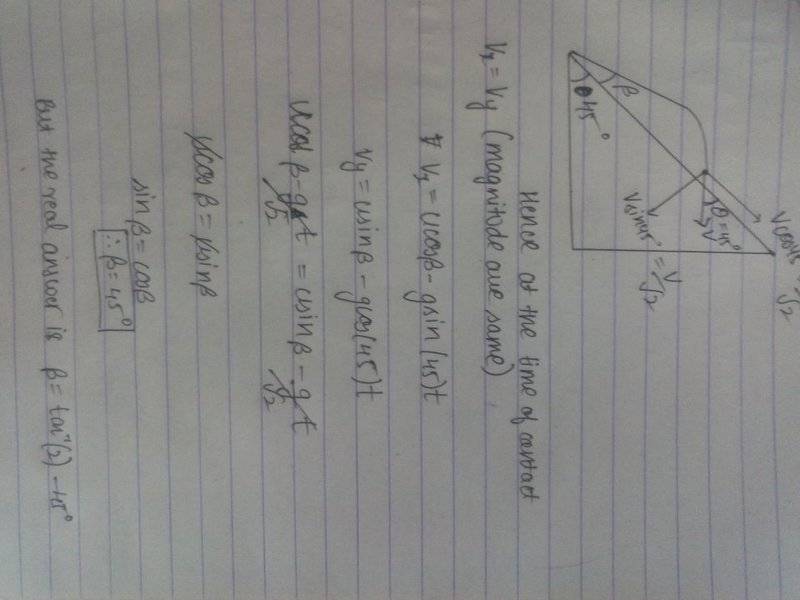 V cos45 = V/√2
θ = 45°
V
V sin45° = V/√2
β
θ 45°
Hence at the time of contact
Vx = Vy (magnitude are same)
Vx = ucosβ - gsin(45)t
Vy = usinβ - gcos(45)t
ucosβ - g/√2 t = usinβ - g/√2 t
ucosβ = usinβ
sinβ = cosβ
∴ β = 45°
But the real answer is β = tan⁻¹(2) - 45°